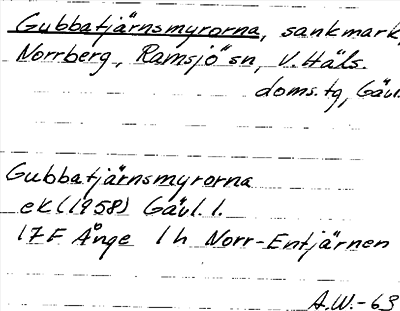 Gubbatjärnsmyrorna, sankmark,
Norrberg, Ramsjö sn, V. Häls.
doms.tg, Gävl.
Gubbatjärnsmyrorna
ek (1958) Gävl. l.
17F Ånge 1h Norr-Entjärnen
A.W.-63